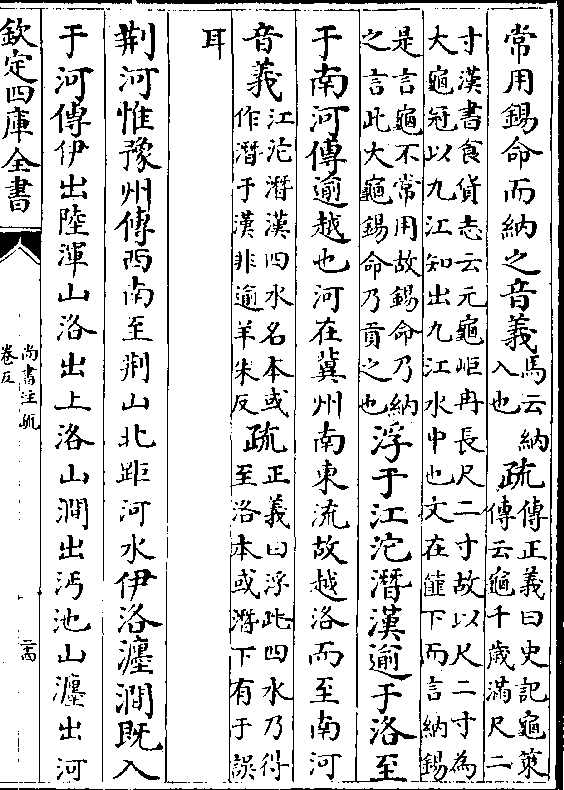 常用錫命而納之音義馬云納
入也疏傳正義曰史記龜䇿
傳云龜千歲滿尺二
寸漢書食貨志云元龜岠冉長尺二寸故以尺二寸為
大龜冠以九江知出九江水中也文在篚下而言納錫
是言龜不常用故錫命乃納
之言此大龜錫命乃貢之也浮于江沱潛漢逾于洛至
于南河傳逾越也河在冀州南東流故越洛而至南河
音義江沱潛漢四水名本或
作潛于漢非逾羊朱反疏正義曰浮此四水乃得
至洛本或潛下有于誤
耳
荆河惟豫州傳西南至荆山北距河水伊洛瀍澗既入
于河傳伊出陸渾山洛出上洛山澗出沔池山瀍出河
欽定四庫全書
尚書注疏
卷五
二十四